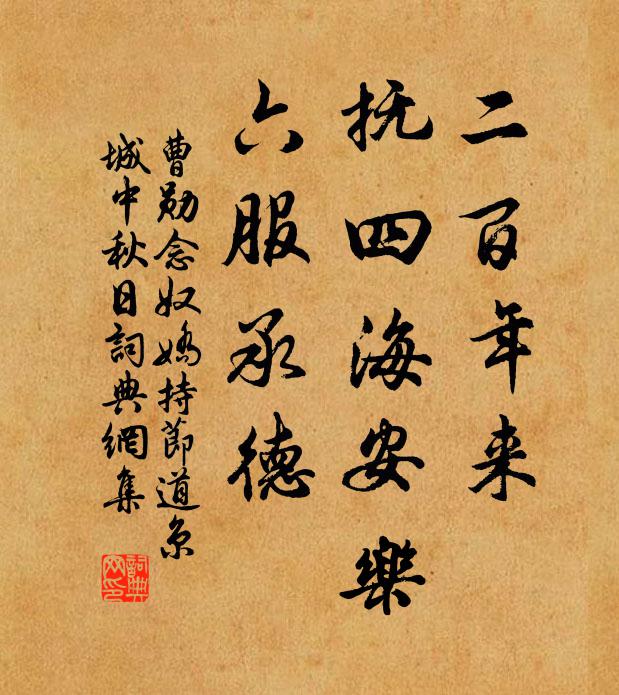 二百年来
抚四海安樂
六服承德
曹勋念奴嬌持節道京
城中秋日詞典網集
詞典网印